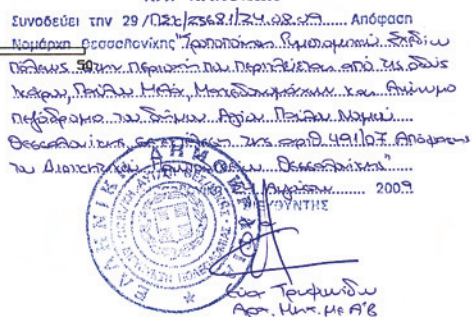 Συνοδεύει την 29/ΠΣχ/25681/24.08.09 Απόφαση
Νομάρχη Θεσσαλονίκης "Τροποποίηση Ρυμοτομικού Σχεδίου
Πόλεως στην περιοχή που περικλείεται από τις οδούς
Ικάρων, Παύλου Μελά, Μακεδονομάχων και Ανώνυμο
πεζόδρομο του Δήμου Αγίου Παύλου Νομού
Θεσσαλονίκης σε εκτέλεση της αριθ 491/07 Απόφασης
του Διοικητικού Πρωτοδικείου Θεσσαλονίκης"
24 Αυγούστου 2009
ΔΙΕΥΘΥΝΤΗΣ
ΕΛΛΗΝΙΚΗ ΔΗΜΟΚΡΑΤΙΑ
Αρχ. Μηχ. με Α'β